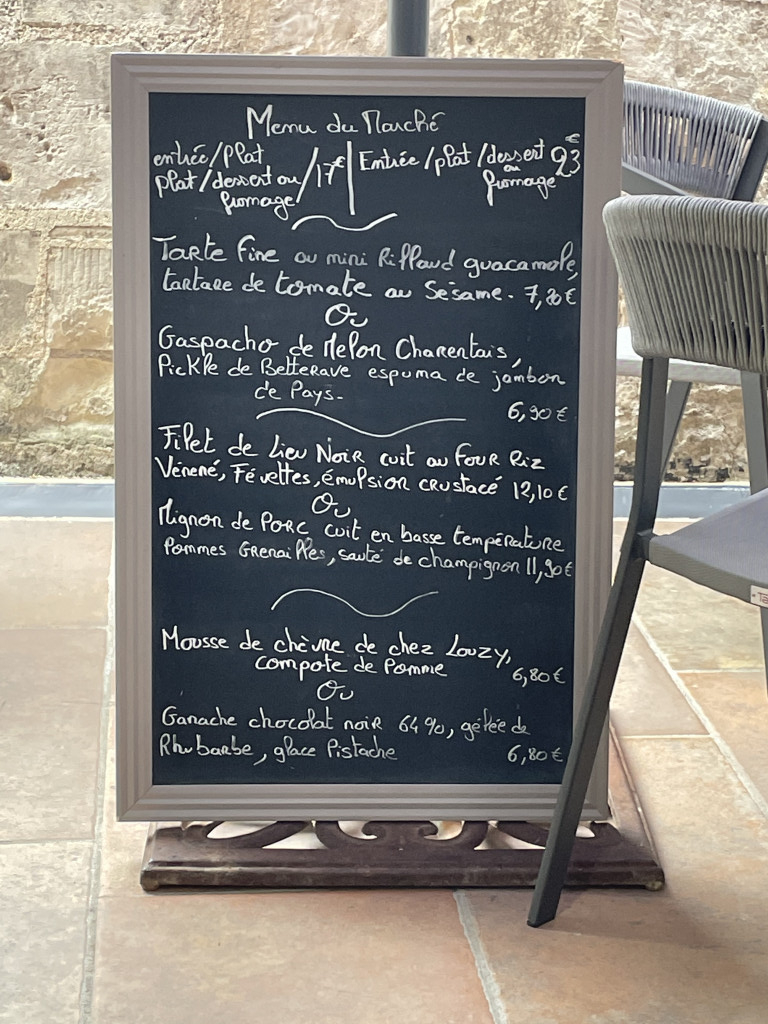 Menu du Marché
entrée/plat
plat/dessert ou /17€
fromage/
Entrée/plat/dessert 23€
ou
fromage
Tarte fine ou mini Riffaud guacamole,
tartare de tomate au Sésame. 7,20€
Ou
Gaspacho de Melon Charentais,
Pickle de Betterave espuma de jambon
de Pays-
6,90€
Filet de Lieu Noir cuit au Four Riz
Vénéné, Févettes, émulsion crustacé 12,10€
Ou
Mignon de Porc cuit en basse température
Pommes Grenailles, sauté de champignon 11,90€
Mousse de chèvre de chez Louzy,
compote de Pomme
6,80€
Ou
Ganache chocolat noir 64%, gélée de
Rhubarbe, glace Pistache 6,80€